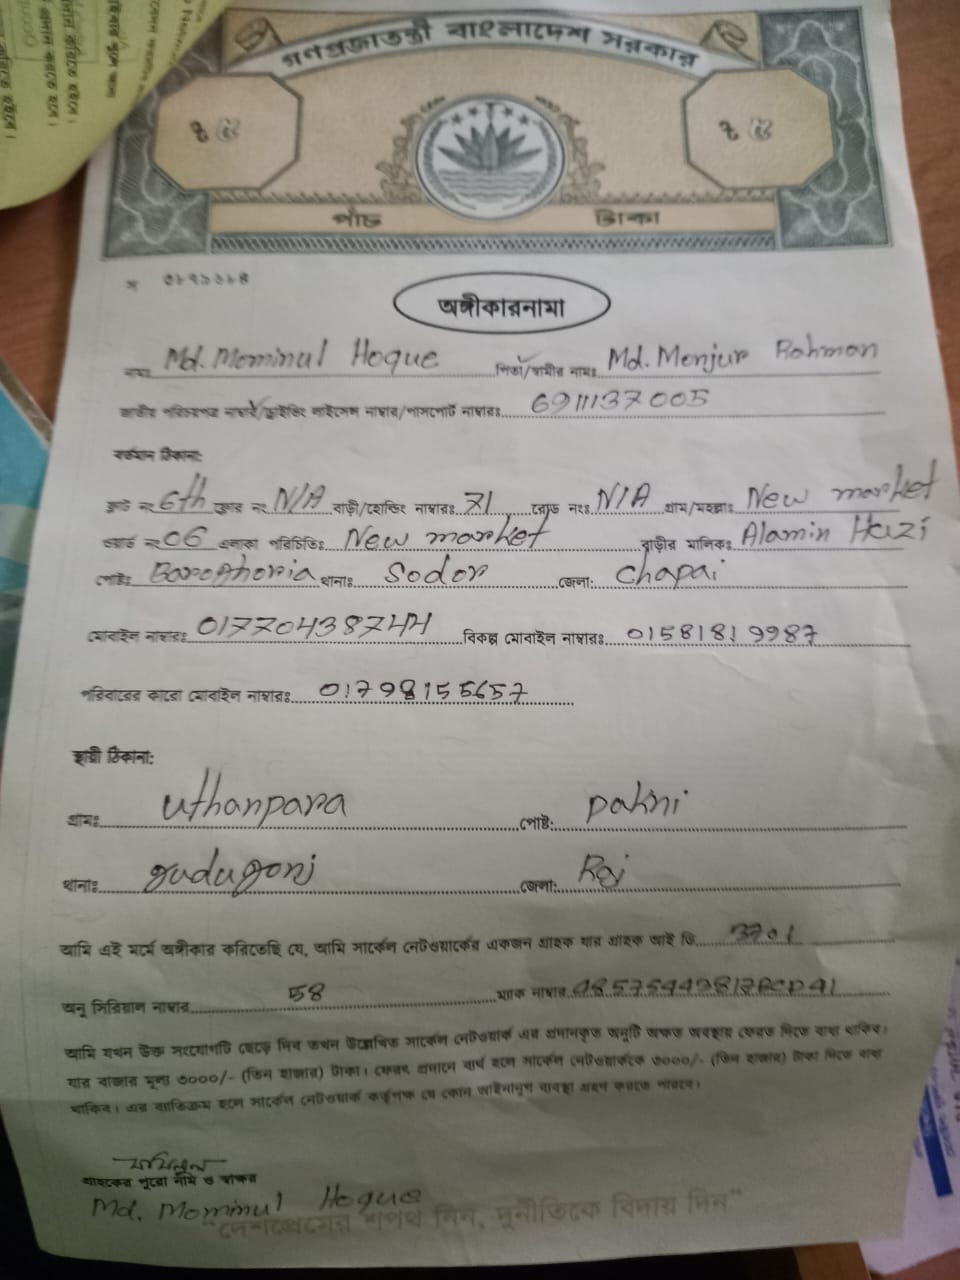 গণপ্রজাতন্ত্রী বাংলাদেশ সরকার
পাঁচ টাকা
অঙ্গীকারনামা
নামঃ Md. Mominul Hoque পিতা/স্বামীর নামঃ Md. Monjur Rohmon
জাতীয় পরিচয়পত্র নাম্বার/ড্রাইভিং লাইসেন্স নাম্বার/পাসপোর্ট নাম্বারঃ 6911137005
বর্তমান ঠিকানা:
ফ্লাট নং 6th ফ্লোর নং N/A বাড়ী/হোল্ডিং নাম্বারঃ 71 রোড নংঃ N/A গ্রাম/মহল্লাঃ New market
ওয়ার্ড নং 06 এলাকা পরিচিতিঃ New market বাড়ীর মালিকঃ Alamin Hazi
পোষ্টঃ থানাঃ Sodor জেলা: Chapai
মোবাইল নাম্বারঃ 01770438744 বিকল্প মোবাইল নাম্বারঃ 01581819987
পরিবারের কারো মোবাইল নাম্বারঃ 01798155657
স্থায়ী ঠিকানা:
গ্রামঃ Uthanpara পোষ্ট: pakni
থানাঃ gudugonj জেলা: Raj
আমি এই মর্মে অঙ্গীকার করিতেছি যে, আমি সার্কেল নেটওয়ার্কের একজন গ্রাহক যার গ্রাহক আই ডি 3701
অনু সিরিয়াল নাম্বার 58 ম্যাক নাম্বার
আমি যখন উক্ত সংযোগটি ছেড়ে দিব তখন উল্লেখিত সার্কেল নেটওয়ার্ক এর প্রদানকৃত অনুটি অক্ষত অবস্থায় ফেরত দিতে বাধ্য থাকিব।
যার বাজার মূল্য ৩০০০/- (তিন হাজার) টাকা। ফেরৎ প্রদানে ব্যর্থ হলে সার্কেল নেটওয়ার্ককে ৩০০০/- (তিন হাজার) টাকা দিতে বাধ্য
থাকিব। এর ব্যতিক্রম হলে সার্কেল নেটওয়ার্ক কর্তৃপক্ষ যে কোন আইনানুগ ব্যবস্থা গ্রহন করতে পারবে।
মমিনুল
গ্রাহকের পুরো নাম ও স্বাক্ষর
Md. Mominul Hoque
"দেশপ্রেমের শপথ নিন, দুর্নীতিকে বিদায় দিন"